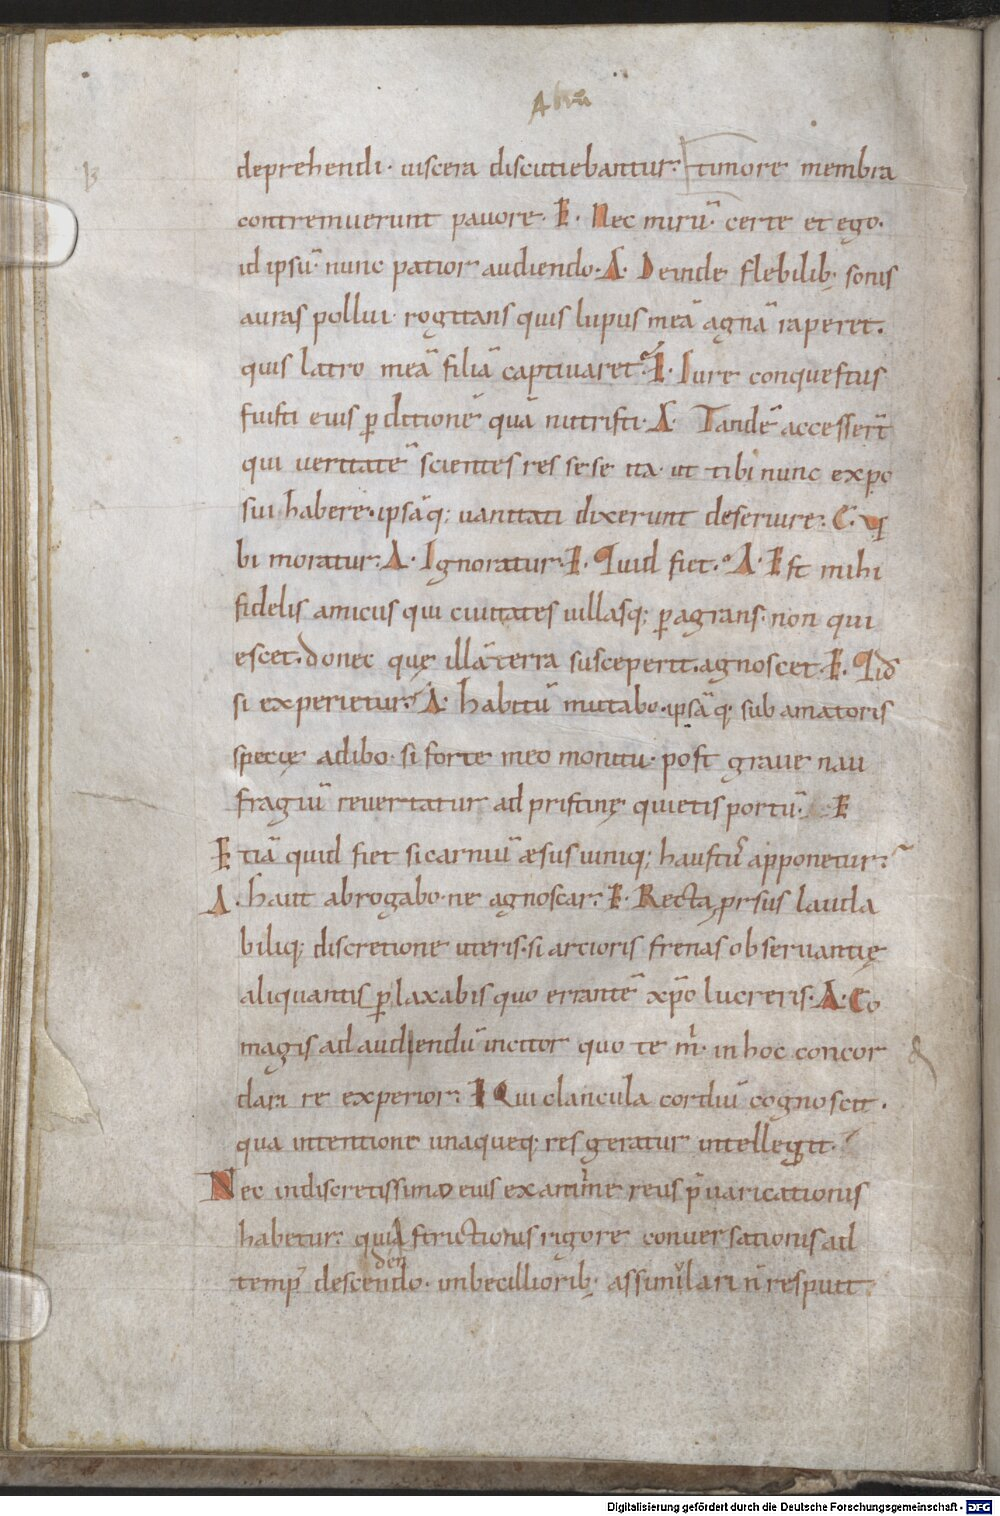 Abrã
deprehendi · uiscera discutiebantur · timore membra
contremuerunt pauore · E · Nec mirũ · certe et ego ·
id ipsũ nunc patior audiendo · A · Deinde flebilib; sonis
auras pollui · rogitans quis lupus meã agnã raperet .
quis latro meã filiã captiuaret · E · Iure conquestus
fuisti eius ꝑditionẽ quã nutristi · A · Tandẽ accessert̃
qui ueritatẽ scientes res sese ita · ut tibi nunc expo
sui habere · ipsãq; uanitati dixerunt deseruire · E · V
bi moratur · A · Ignoratur · E · Quid fiet · A · Est mihi
fidelis amicus qui ciuitates uillasq; ꝑagrans · non qui
escet · donec quę illã terra susceperit · agnoscet · E · Qid
si experietur · A · habitũ mutabo · ipsãq; sub amatoris
specię adibo · si forte meo monitu · post graue nau
fragiũ reuertatur ad pristinę quietis portũ · E
Etiã quid fiet si carniũ æsus uiniq; haustũs apponetur ·
A · haut abrogabo · ne agnoscar · E · Recta prsus lauda
biliq; discretione uteris · si arcioris frenas obseruantię
aliquantis ꝑ laxabis quo errantẽ xp̃o lucreris · A · Eo
magis ad audiendũ incitor quo te m̃ · in hoc concor
dari re experior · E Qui clancula cordiũ cognoscit .
qua intentione unaqueq; res geratur intellegit .
Nec indiscretissimo eius examine reus p̃uaricationis
habetur · qui A strictionis rigore conuersationis ad
den
temp̃ descendo · imbecilliorib; assimulari ñ respuit
Digitalisierung gefördert durch die Deutsche Forschungsgemeinschaft - DFG